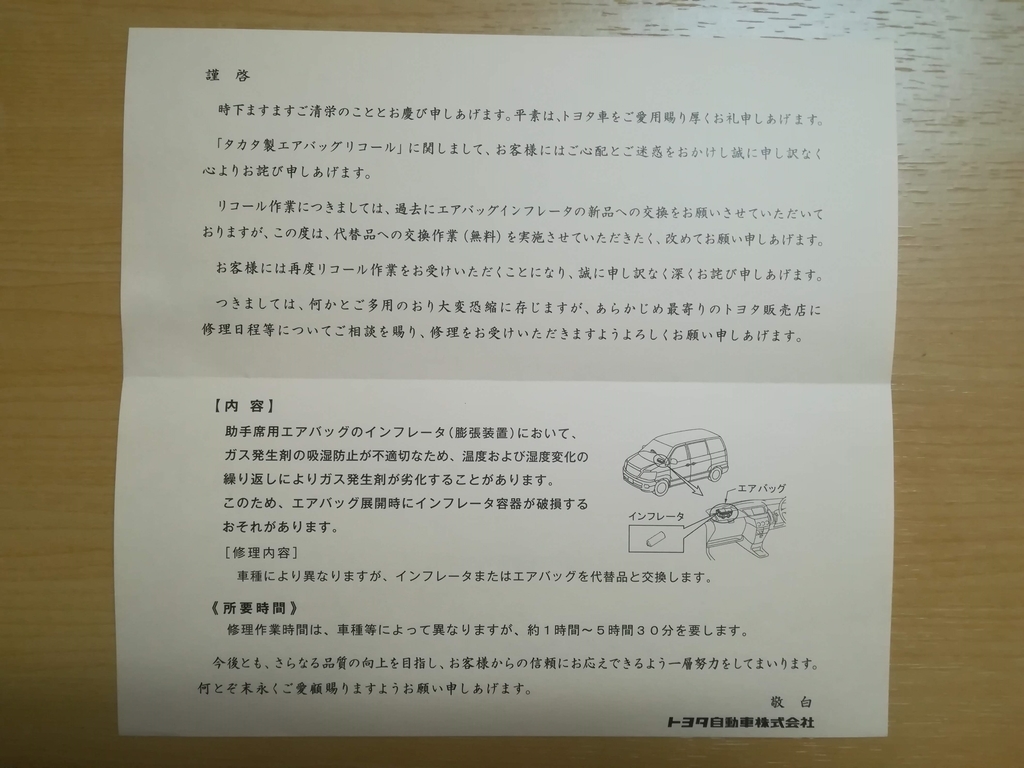 謹 啓
時下ますますご清栄のこととお慶び申しあげます。平素は、トヨタ車をご愛用賜り厚くお礼申しあげます。
「タカタ製エアバッグリコール」に関しまして、お客様にはご心配とご迷惑をおかけし誠に申し訳なく
心よりお詫び申しあげます。
リコール作業につきましては、過去にエアバッグインフレータの新品への交換をお願いさせていただいて
おりますが、この度は、代替品への交換作業(無料)を実施させていただきたく、改めてお願い申しあげます。
お客様には再度リコール作業をお受けいただくことになり、誠に申し訳なく深くお詫び申しあげます。
つきましては、何かとご多用のおり大変恐縮に存じますが、あらかじめ最寄りのトヨタ販売店に
修理日程等についてご相談を賜り、修理をお受けいただきますようよろしくお願い申しあげます。
【内 容】
助手席用エアバッグのインフレータ(膨張装置)において、
ガス発生剤の吸湿防止が不適切なため、温度および湿度変化の
繰り返しによりガス発生剤が劣化することがあります。
このため、エアバッグ展開時にインフレータ容器が破損する
おそれがあります。
エアバッグ
インフレータ
[修理内容]
車種により異なりますが、インフレータまたはエアバッグを代替品と交換します。
《所要時間》
修理作業時間は、車種等によって異なりますが、約1時間～5時間30分を要します。
今後とも、さらなる品質の向上を目指し、お客様からの信頼にお応えできるよう一層努力をしてまいります。
何とぞ末永くご愛顧賜りますようお願い申しあげます。
敬 白
トヨタ自動車株式会社